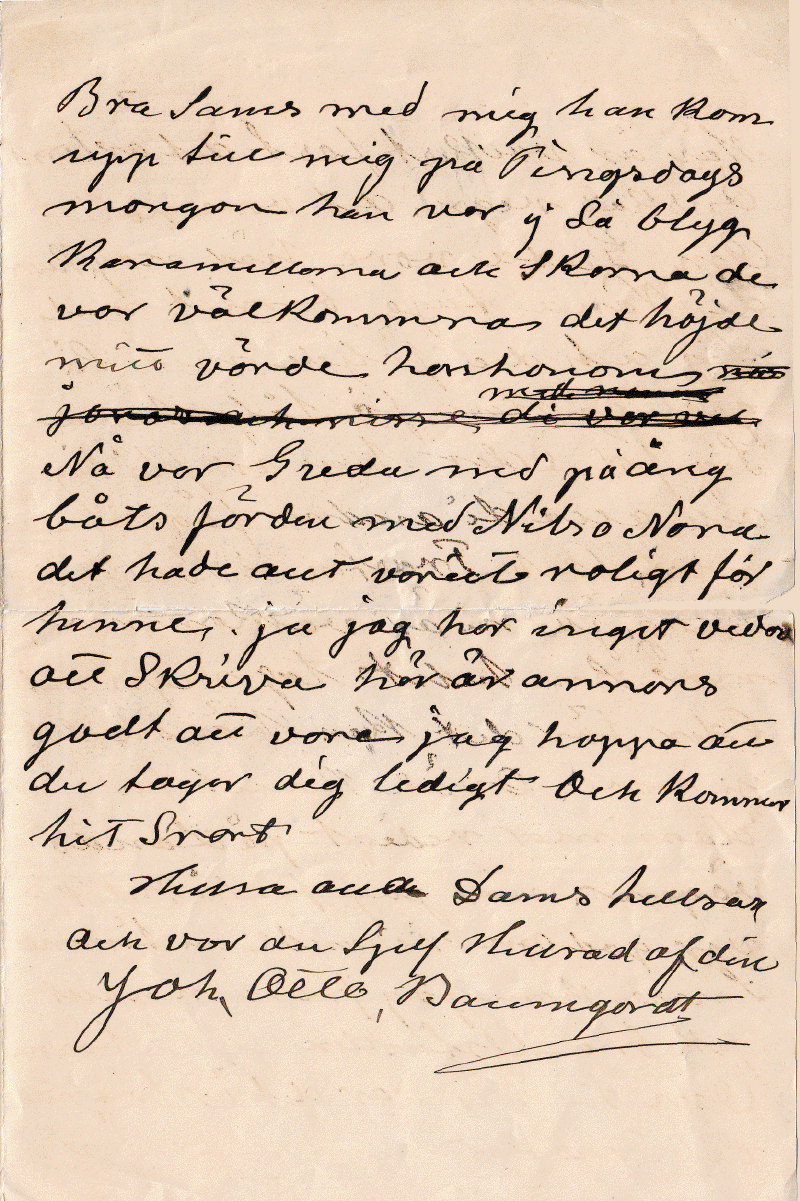 Bra Sams med mig han kom
upp till mig på Pingsdags
morgon han var ij Så blyg
Karamellorna och Skorna de
var välkommna det höjde
mitt värde hos honom
Nå var Greda med på äng
båts färden med Nils o Nora
det hade allt vari't roligt för
henne, ja jag har inget vidare
att Skriva här är annars
godt att vara jag hoppa att
du tager dig ledigt Och Kommer
hit Snart
Hellsa alla Dams hellsar
och var du Sjelf Hellsad af din
Joh, Otto, Baumgardt